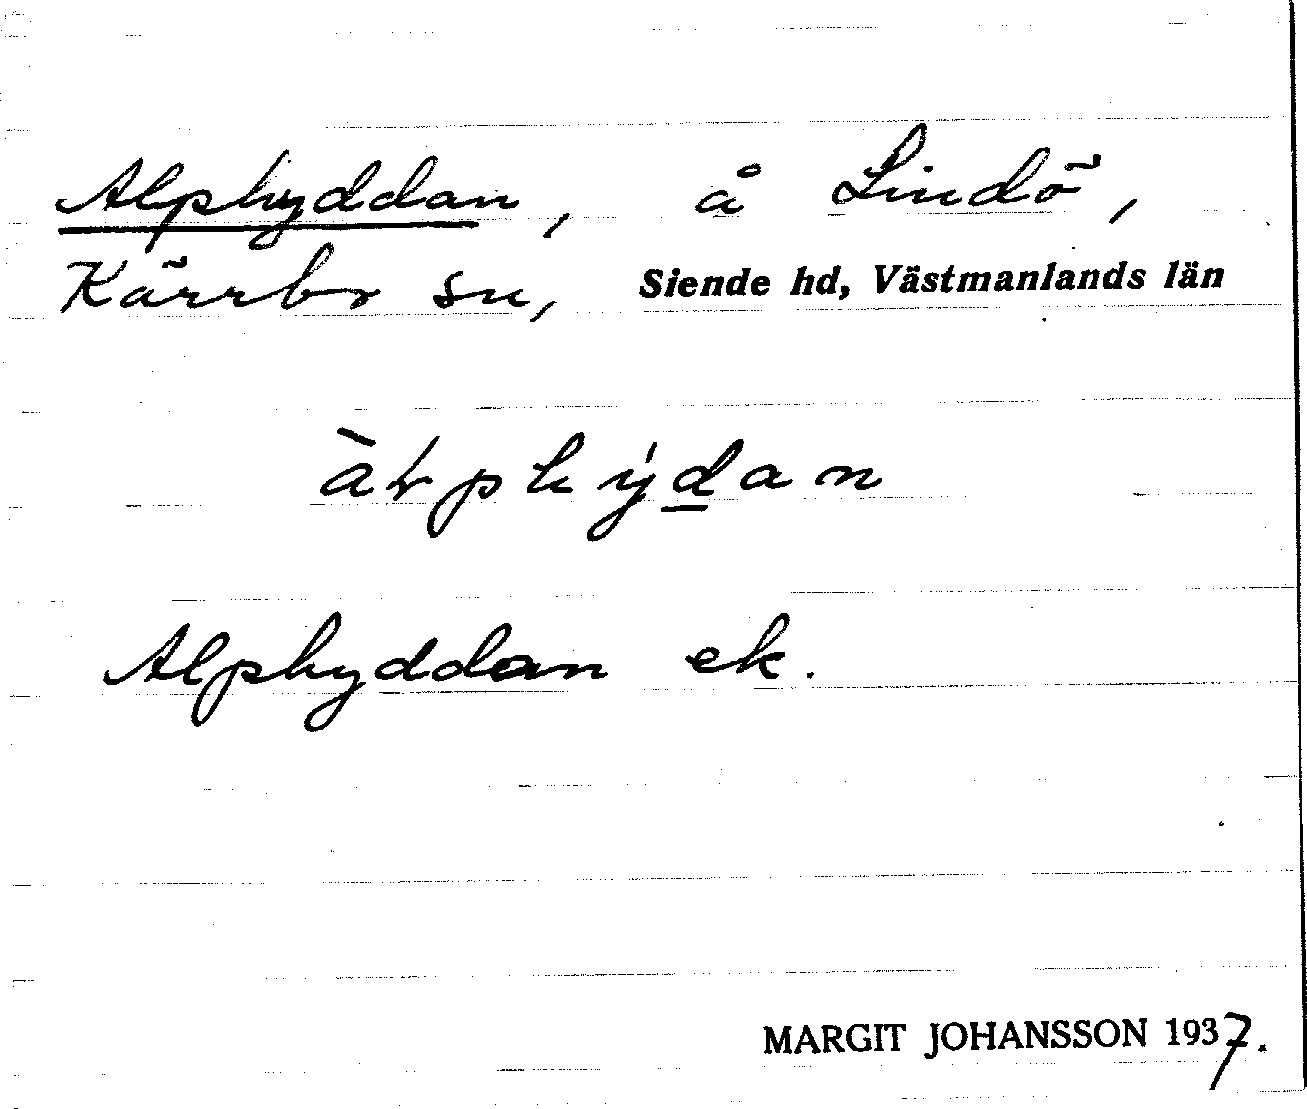 Alphyddan, å Lindö,
Kärrbo sn, Siende hd, Västmanlands län
àƚphýdan
Alphyddan ek.
MARGIT JOHANSSON 1937.